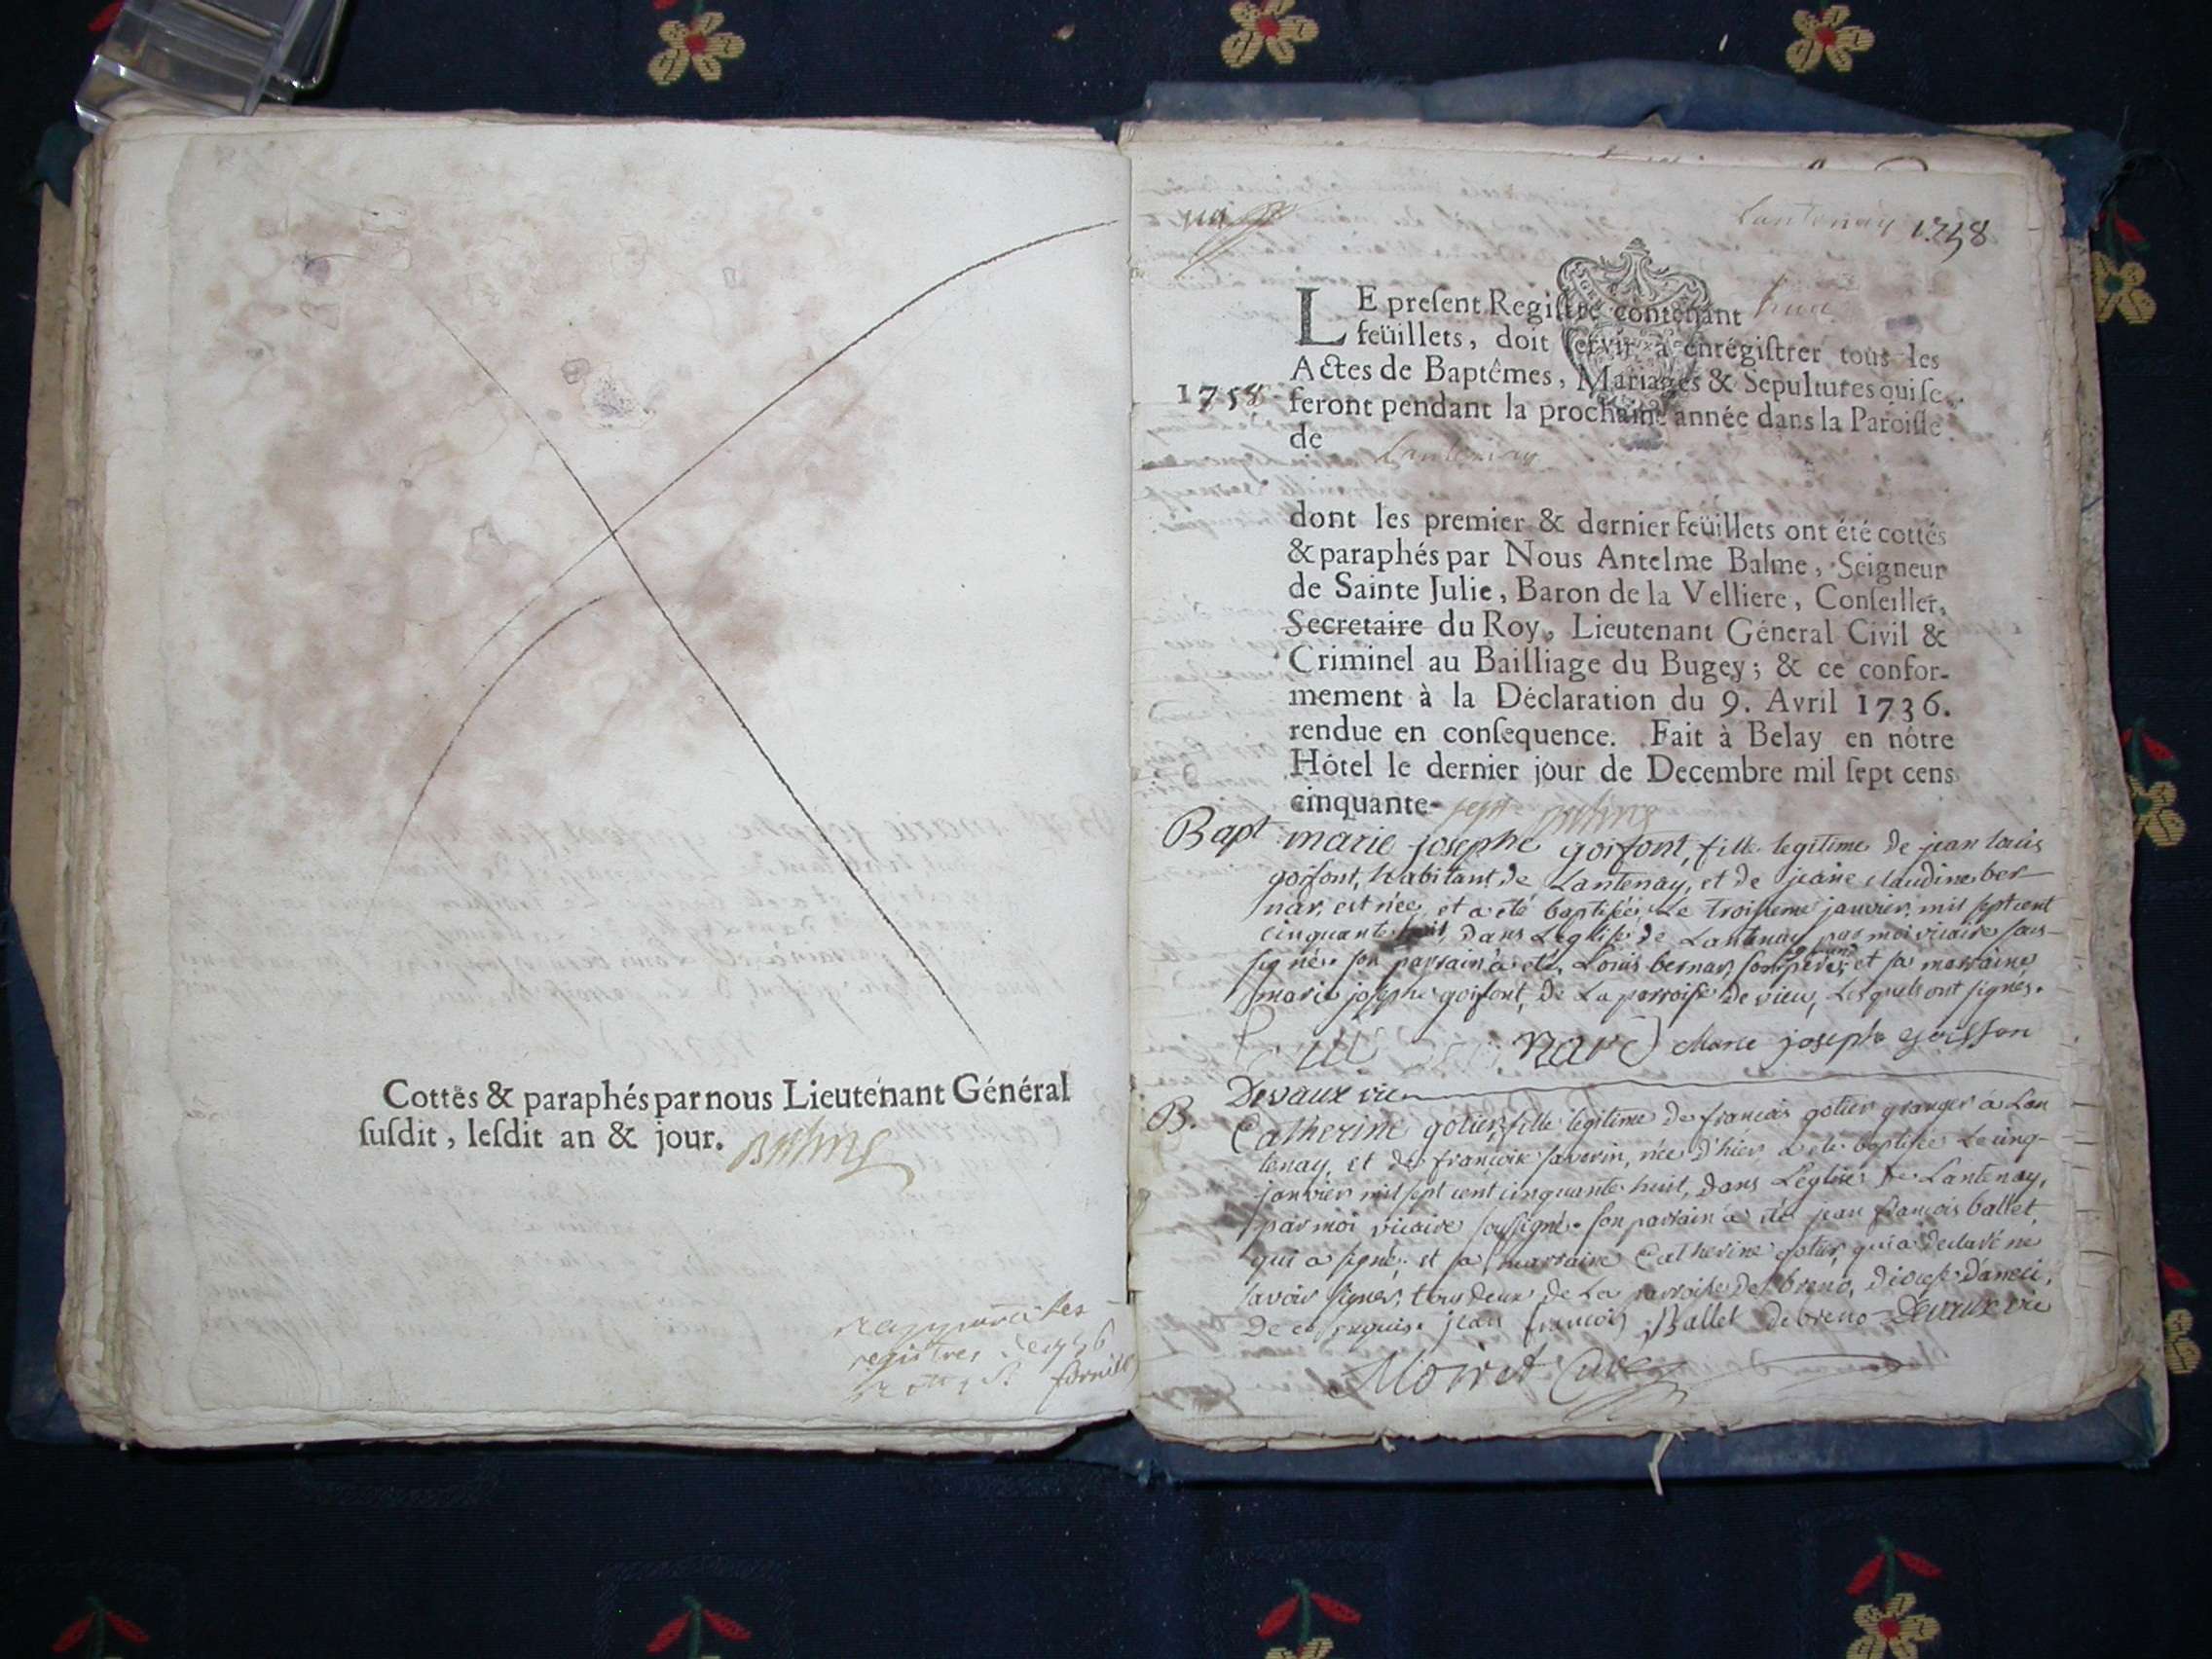 Cottés & paraphés par nous Lieutenant Général
susdit, lesdit an & jour.
registres
Lantenay 1758
LE present Registre contenant
feüillets, doit servir à enrégistrer tous les
Actes de Baptêmes, Mariages & Sepultures qui se
1758
feront pendant la prochaine année dans la Paroisse
de Lantenay
dont les premier & dernier feüillets ont été cottés
& paraphés par Nous Antelme Balme, Seigneur
de Sainte Julie, Baron de la Velliere, Conseiller,
Secretaire du Roy, Lieutenant Géneral Civil &
Criminel au Bailliage du Bugey; & ce confor-
mement à la Déclaration du 9. Avril 1736.
rendue en consequence. Fait à Belay en nôtre
Hôtel le dernier jour de Decembre mil sept cens
cinquante- sept
Bapt marie josephe goifont, fille legitime de jean louis
goifont, habitant de Lantenay, et de jeane claudine ber
nar, est née, et a été baptisée, Le troisieme janvier, mil sept cent
cinquante huit, dans L'eglise de Lantenay par moi vicaire sous-
signé. son parrain a été, Louis bernar, et sa marraine
marie josephe goifont, de La parroisse de vieu, Lesquels ont signés.
Marie josephe goiffon
Devaux vic
B. Catherine gotier, fille legitime de francois gotier granger à Lan
tenay, et de françoise saverin, née d'hier a été baptisée Le cinq
janvier mil sept cent cinquante huit, dans L'eglise de Lantenay,
par moi vicaire soussigné. son parrain a été jean francois ballet,
qui a signé, et sa marraine Catherine gotier, qui a declaré ne
savoir signer, tous deux de La parroisse de breno, diocese d'aneci,
De ce requis. jean francois Ballet debreno Devaux vic
Moiret Curé